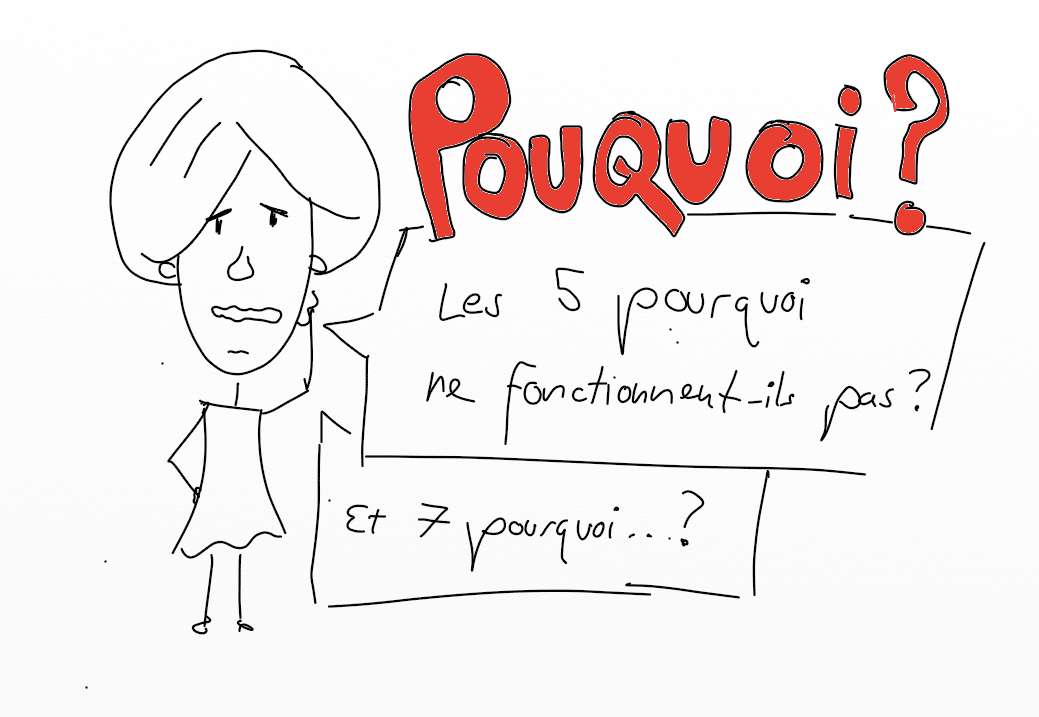 PouQuoi?
Les 5 pourquoi
ne fonctionnent-ils pas?
Et 7 pourquoi...?